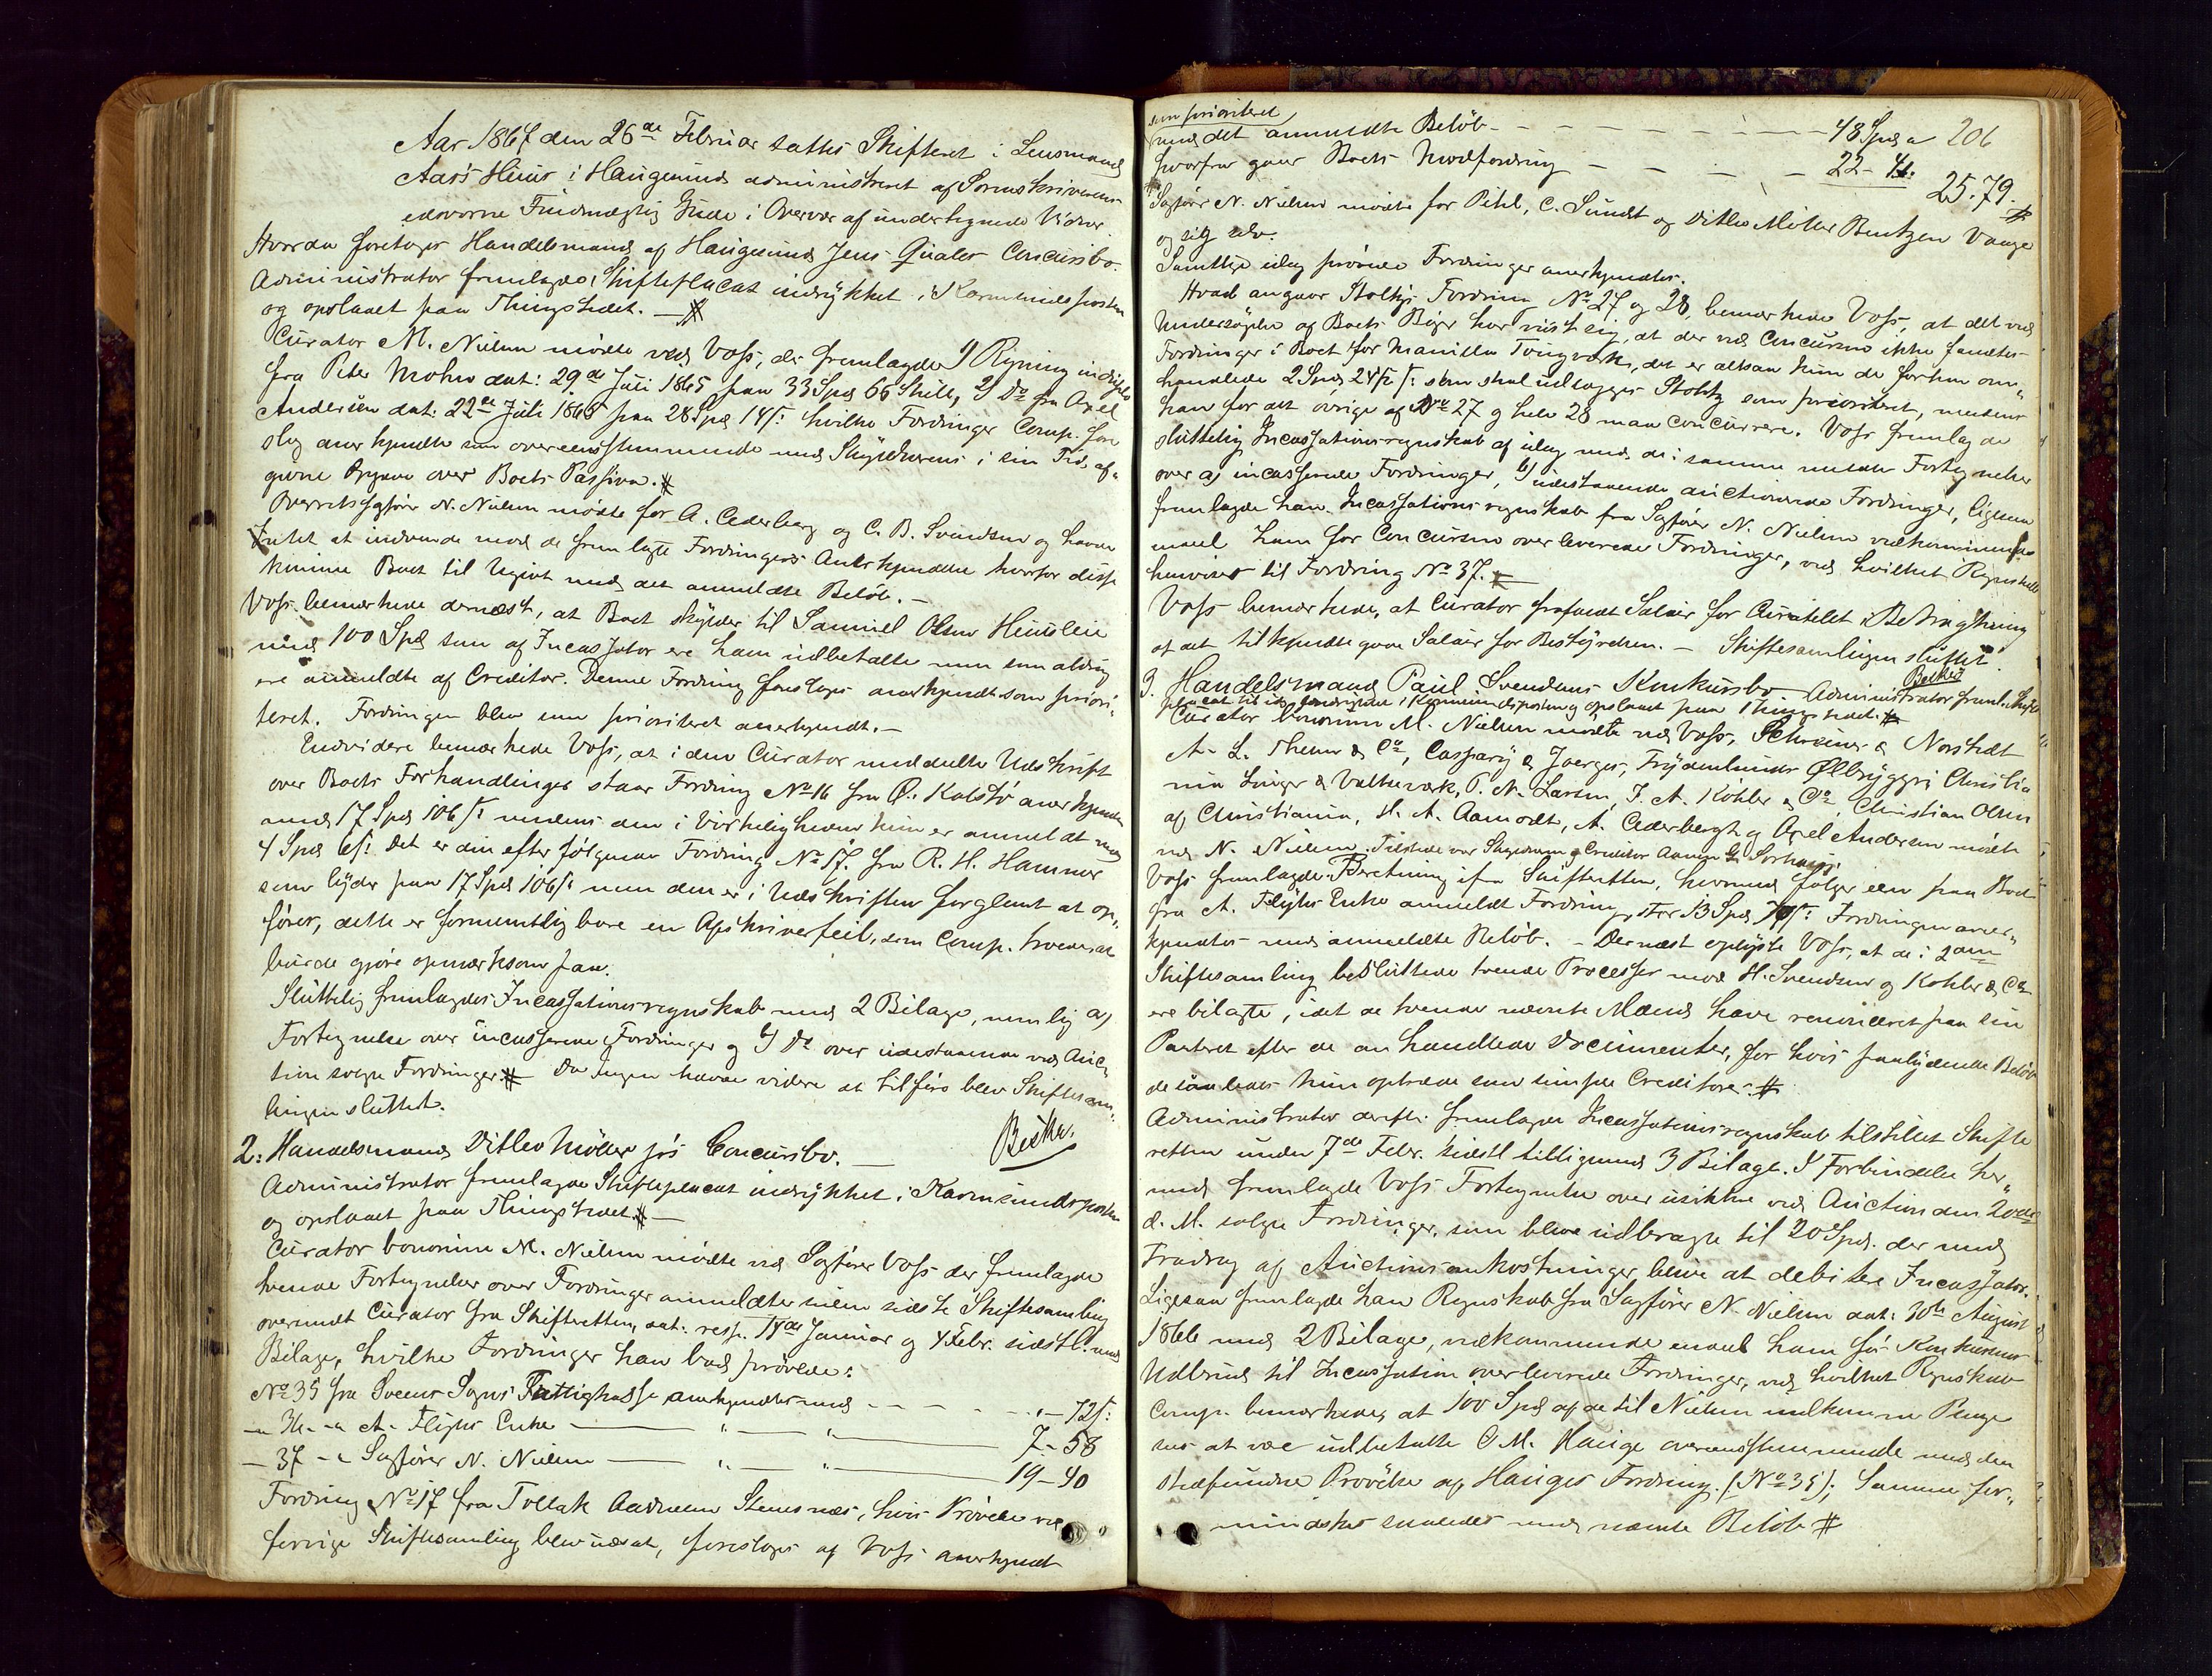 Aar 1867 den 26de Februar sattes Skifteret i Lensmand
Aars Huus i Haugesund administreret af Sorenskriverens
edsvorne Fuldmægtig Gude i Overvær af undertegnede Vidner.
Hvorda foretoges Handelsmand af Haugesund Jens Qvales Concursbo.
Administrator fremlagde Skifteplacat indrykket i Karmsundsposten
og opslaaet paa Thingstedet. —#
Curator M. Nielsen mødte ved Voss, der fremlagde 1) Regning indsendt
fra Peter Mohn dat: 29de Juli 1865 paa 33 Spd 66 Skill, 2) Do fra Axel
Andersen dat: 22de Juli 1865 paa 28 Spd 14 s: hvilke Fordringer Comp. fore
slog anerkjendte som overeensstemmende med Skyldnerens i sin Tid af-
givne Opgave over Boets Passiva. #
Overretssagfører N. Nielsen mødte for A. Cederberg og C. B. Svendsen og havde
Intet at indvende mod de fremlagte Fordringers Anerkjendelse hvorfor disse
komme Boet til Udgivt med det anmeldte Beløb. —
Voss bemærkede dernæst, at Boet skylder til Samuel Olsen Huusleie
med 100 Spd som af Incassator ere ham udbetalte men som aldrig
ere anmeldte af Creditor. Denne Fordring foresloges anerkjendt som priori-
teret. Fordringen blev som prioriteret anerkjendt. —
Endvidere bemærkede Voss, at i den Curator meddeelte Udskrift
over Boets Forhandlinger staar Fordring No 16 fra Ø. Kalstø anerkjendt
med 17 Spd 106 s: medens den i Virkeligheden kun er anmeldt med
4 Spd 6 s: Det er den efterfølgende Fordring No 17. fra R. H. Hammer
som lyder paa 17 Spd 106 s: men den er i Udskriften forglemt at op-
føres, dette er formentlig bare en Afskriverfeil, som Comp. troede at
burde gjøre opmærksom paa.
Sluttelig fremlagdes Incassationsregnskab med 2 Bilage, nemlig a)
Fortegnelse over incasserede Fordringer og b) Do over udestaaende ved Auc-
tion solgte Fordringer # Da Ingen havde videre at tilføre blev Skiftesam-
lingen sluttet.
2. Handelsmand Ditlev Møller jrs Concursbo. —
Administrator fremlagde Skifteplacat indrykket i Karmsundsposten
og opslaaet paa Thingstedet # —
Curator bonorum M. Nielsen mødte ved Sagfører Voss der fremlagde
tvende Fortegnelser over Fordringer anmeldte siden sidste Skiftesamling
oversendt Curator fra Skifteretten, dat. resp. 14de Januar og 4 Febr. sidstl. med
Bilage, hvilke Fordringer han bad prøvede:
No 35 fra Sveens Sogns Fattigkasse anerkjendtes med - - - - „ — 72 s:
— 36 - „ A. Flyhs Enke — „ — „ — 7 - 58
— 37 - „ Sagfører N. Nielsen — „ — „ — 19 - 40
Fordring No 17 fra Tollak Aadnesen Stensnæs, hvis Prøvelse ved
forrige Skiftesamling blev udsat, foresloges af Voss anerkjendt
som prioriteret
med det anmeldte Beløb - - - - - 48 Spd „ 206
hvorfra gaar Boets Modfordring - - - - 22 - 41.
25. 79. #
Sagfører N. Nielsen mødte for Pihl, C. Sundt og Ditlev Møller Bentzen Vaage
og sig selv.
Samtlige idag prøvede Fordringer anerkjendtes.
Hvad angaar Stoltz's Fordring No 27 og 28, bemærkede Voss, at det ved
Undersøgelse af Boets Bøger har viist sig, at der ved Concursen ikke fandtes
Fordringer i Boet for Manilla Tougværk, det er altsaa kun de forhen om-
handlede 2 Spd 24½ s: som skal udlægges Stoltz som prioriteret, medens
han for det øvrige af No 27 og hele 28 maa concurrere. Voss fremlagde
sluttelig Incassationsregnskab af idag med de i samme meldte Fortegnelser
over a) incasserede Fordringer, b) udestaaende auctionerede Fordringer, ligesom
fremlagde han Incassationsregnskab fra Sagfører N. Nielsen vedkommende
med ham før Concursen overleverede Fordringer, ved hvilket Regnskab
henvises til Fordring No 37. #
Voss bemærkede, at Curator frafaldt Salair for Curatelet i Betragtning
af det tilkjendtegivne Salair for Bestyrelsen. — Skiftesamlingen sluttet.
3. Handelsmand Paul Svendsens Konkursbo. Administrator freml. Skifte
placat til idag indrykket i Karmsundsposten og opslaaet paa Thingstedet. #
Curator bonorum M. Nielsen mødte ved Voss, Schreiner & Norstedt
A. L. Thune & Co, Caspary & Joerges, Frydenlunds Ølbryggri Christia
nia Luger & Valseværk, P. N. Larsen, J. A. Köhler & Co, Christian Olsen
af Christiania, H. A. Aamodt, A. Cederbergh og Axel Andersen mødte
ved N. Nielsen. Tilstede var Skyldneren og Creditor
Voss fremlagde Beretning ifra Skifteretten, hvormed følger een paa Boet
fra A. Flyhs Enke anmeldt Fordring, stor 13 Spd 70 s: Fordringen aner-
kjendtes med anmeldte Beløb. — Dernæst oplyste Voss, at de i
Skiftesamling besluttede tvende Processer mod H. Svendsen og Köhler & Co
ere bilagte, idet de tvende nævnte Mænd have renunceret paa sin
Panteret efter de omhandlede Documenter, for hvis paalydende Beløb
de saaledes kun optræde som simple Creditorer. #
Administrator derefter fremlagde Incassationsregnskab tilstillet Skifte
retten under 7de Febr. sidstl. tilligemed 3 Bilage. I Forbindelse her-
med fremlagde Voss Fortegnelse over usikkre ved Auction den 20de
d. M. solgte Fordringer, som bleve udbragte til 20 Spd. der med
Fradrag af Auctionsomkostninger blive at debitere Incassator.
Ligesaa fremlagde han Regnskab fra Sagfører N. Nielsen dat: 30te August
1866 med 2 Bilage, vedkommende endeel ham før Konkursens
Udbrud til Incassation overleverede Fordringer, ved hvilket Regnskab
Comp. bemærkede, at 100 Spd af de til Nielsen indkomne Penge
sees at være udbetalte O. M. Hauge overeensstemmende med den
stedfundne Prøvelse af Hauges Fordring. (No 35); Samme for-
mindskes saaledes med nævnte Beløb #